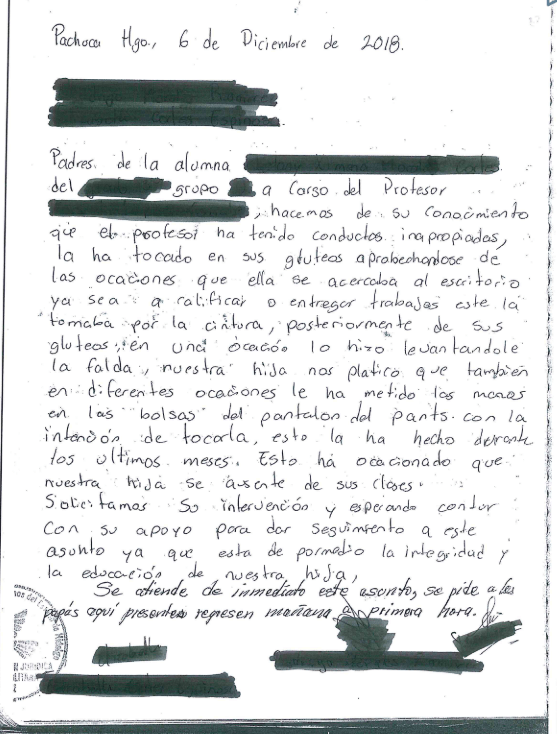 Pachuca Hgo., 6 de Diciembre de 2018.
Padres de la alumna
del grupo a Cargo del Profesor
, hacemos de su Conocimiento
que el profesor ha tenido conductas inapropiadas,
la ha tocado en sus gluteos aprobechandose de
las ocaciones que ella se acercaba al escritorio
ya sea a calificar o entregar trabajos este la
tomaba por la cintura, posteriormente de sus
gluteos, en una ocación lo hizo levantandole
la falda, nuestra hija nos platico que tambien
en diferentes ocaciones le ha metido las manos
en las "bolsas" del pantalon del pants con la
intención de tocarla, esto la ha hecho durante
los ultimos meses. Esto ha ocacionado que
nuestra hija se ausente de sus clases.
Solicitamos Su intervención y esperando contar
Con su apoyo para dar Seguimiento a este
asunto ya que esta de pormedio la integridad y
la educación de nuestra hija,
Se atiende de inmediato este asunto, se pide a los
papás aquí presentes regresen mañana a primera hora.
JURIDICA